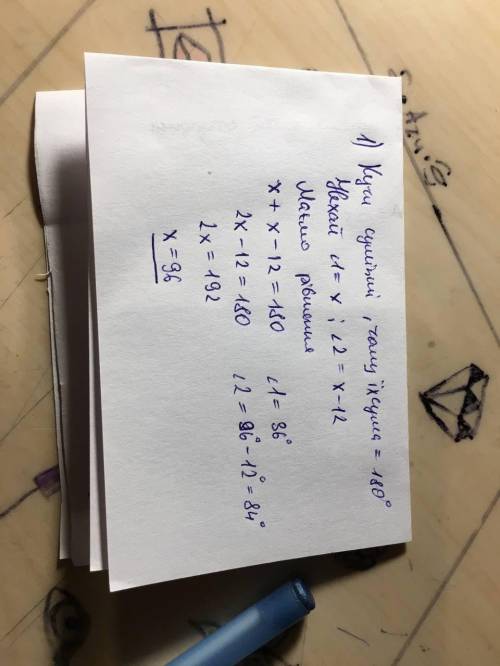 1) Кути суміжні, тому їх сума = 180°
Нехай ∠1 = x ; ∠2 = x - 12
Маємо рівняння
x + x - 12 = 180
2x - 12 = 180
2x = 192
x = 96
∠1 = 96°
∠2 = 96° - 12° = 84°